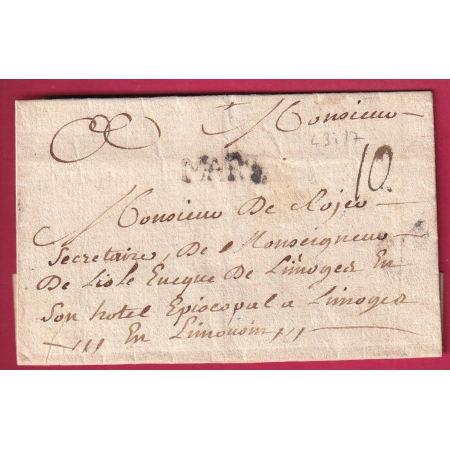 Monsieur
43:17
MARS.
10.
Monsieur De
Secretaire, De Monseigneur
De Lisle Eveque De Limoges En
Son hotel Episcopal a Limoges
En Limousin